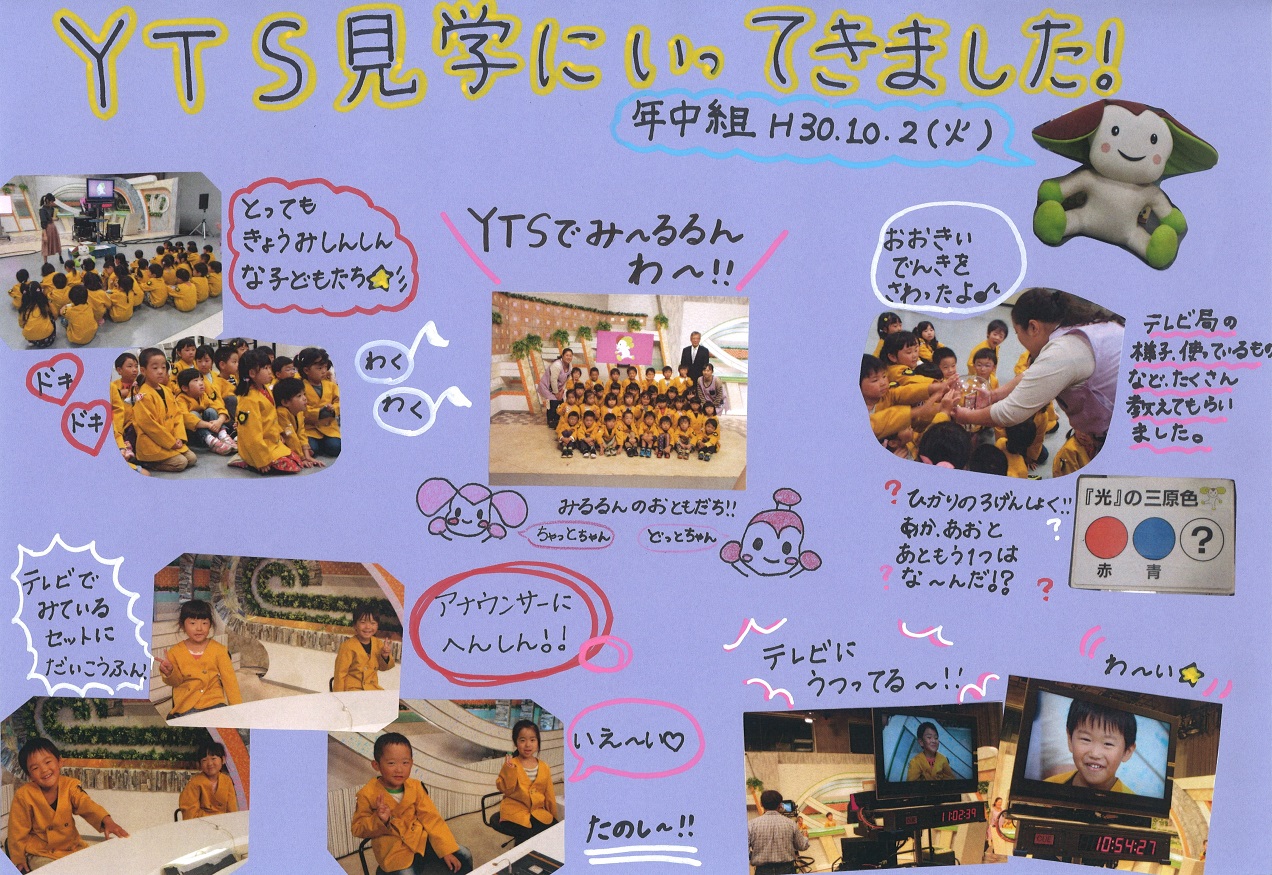 YTS見学にいってきました!
年中組 H30.10.2(火)
とっても
きょうみしんしん
な子どもたち
YTSでみ〜るるん
わ〜!!
おおきい
でんきを
さわったよ
テレビ局の
様子、使っているもの
など、たくさん
教えてもらい
ました。
ドキ
ドキ
わく
わく
みるるんのおともだち!!
ちゃっとちゃん
どっとちゃん
?ひかりの3げんしょく!!
あか、あおと
あともう1つは
な〜んだ!?
『光』の三原色
?
赤 青
テレビで
みている
セットに
だいこうふん!
アナウンサーに
へんしん!!
いえ〜い♡
たのし〜!!
テレビに
うつってる〜!!
わ〜い
11:02:39
10:54:27